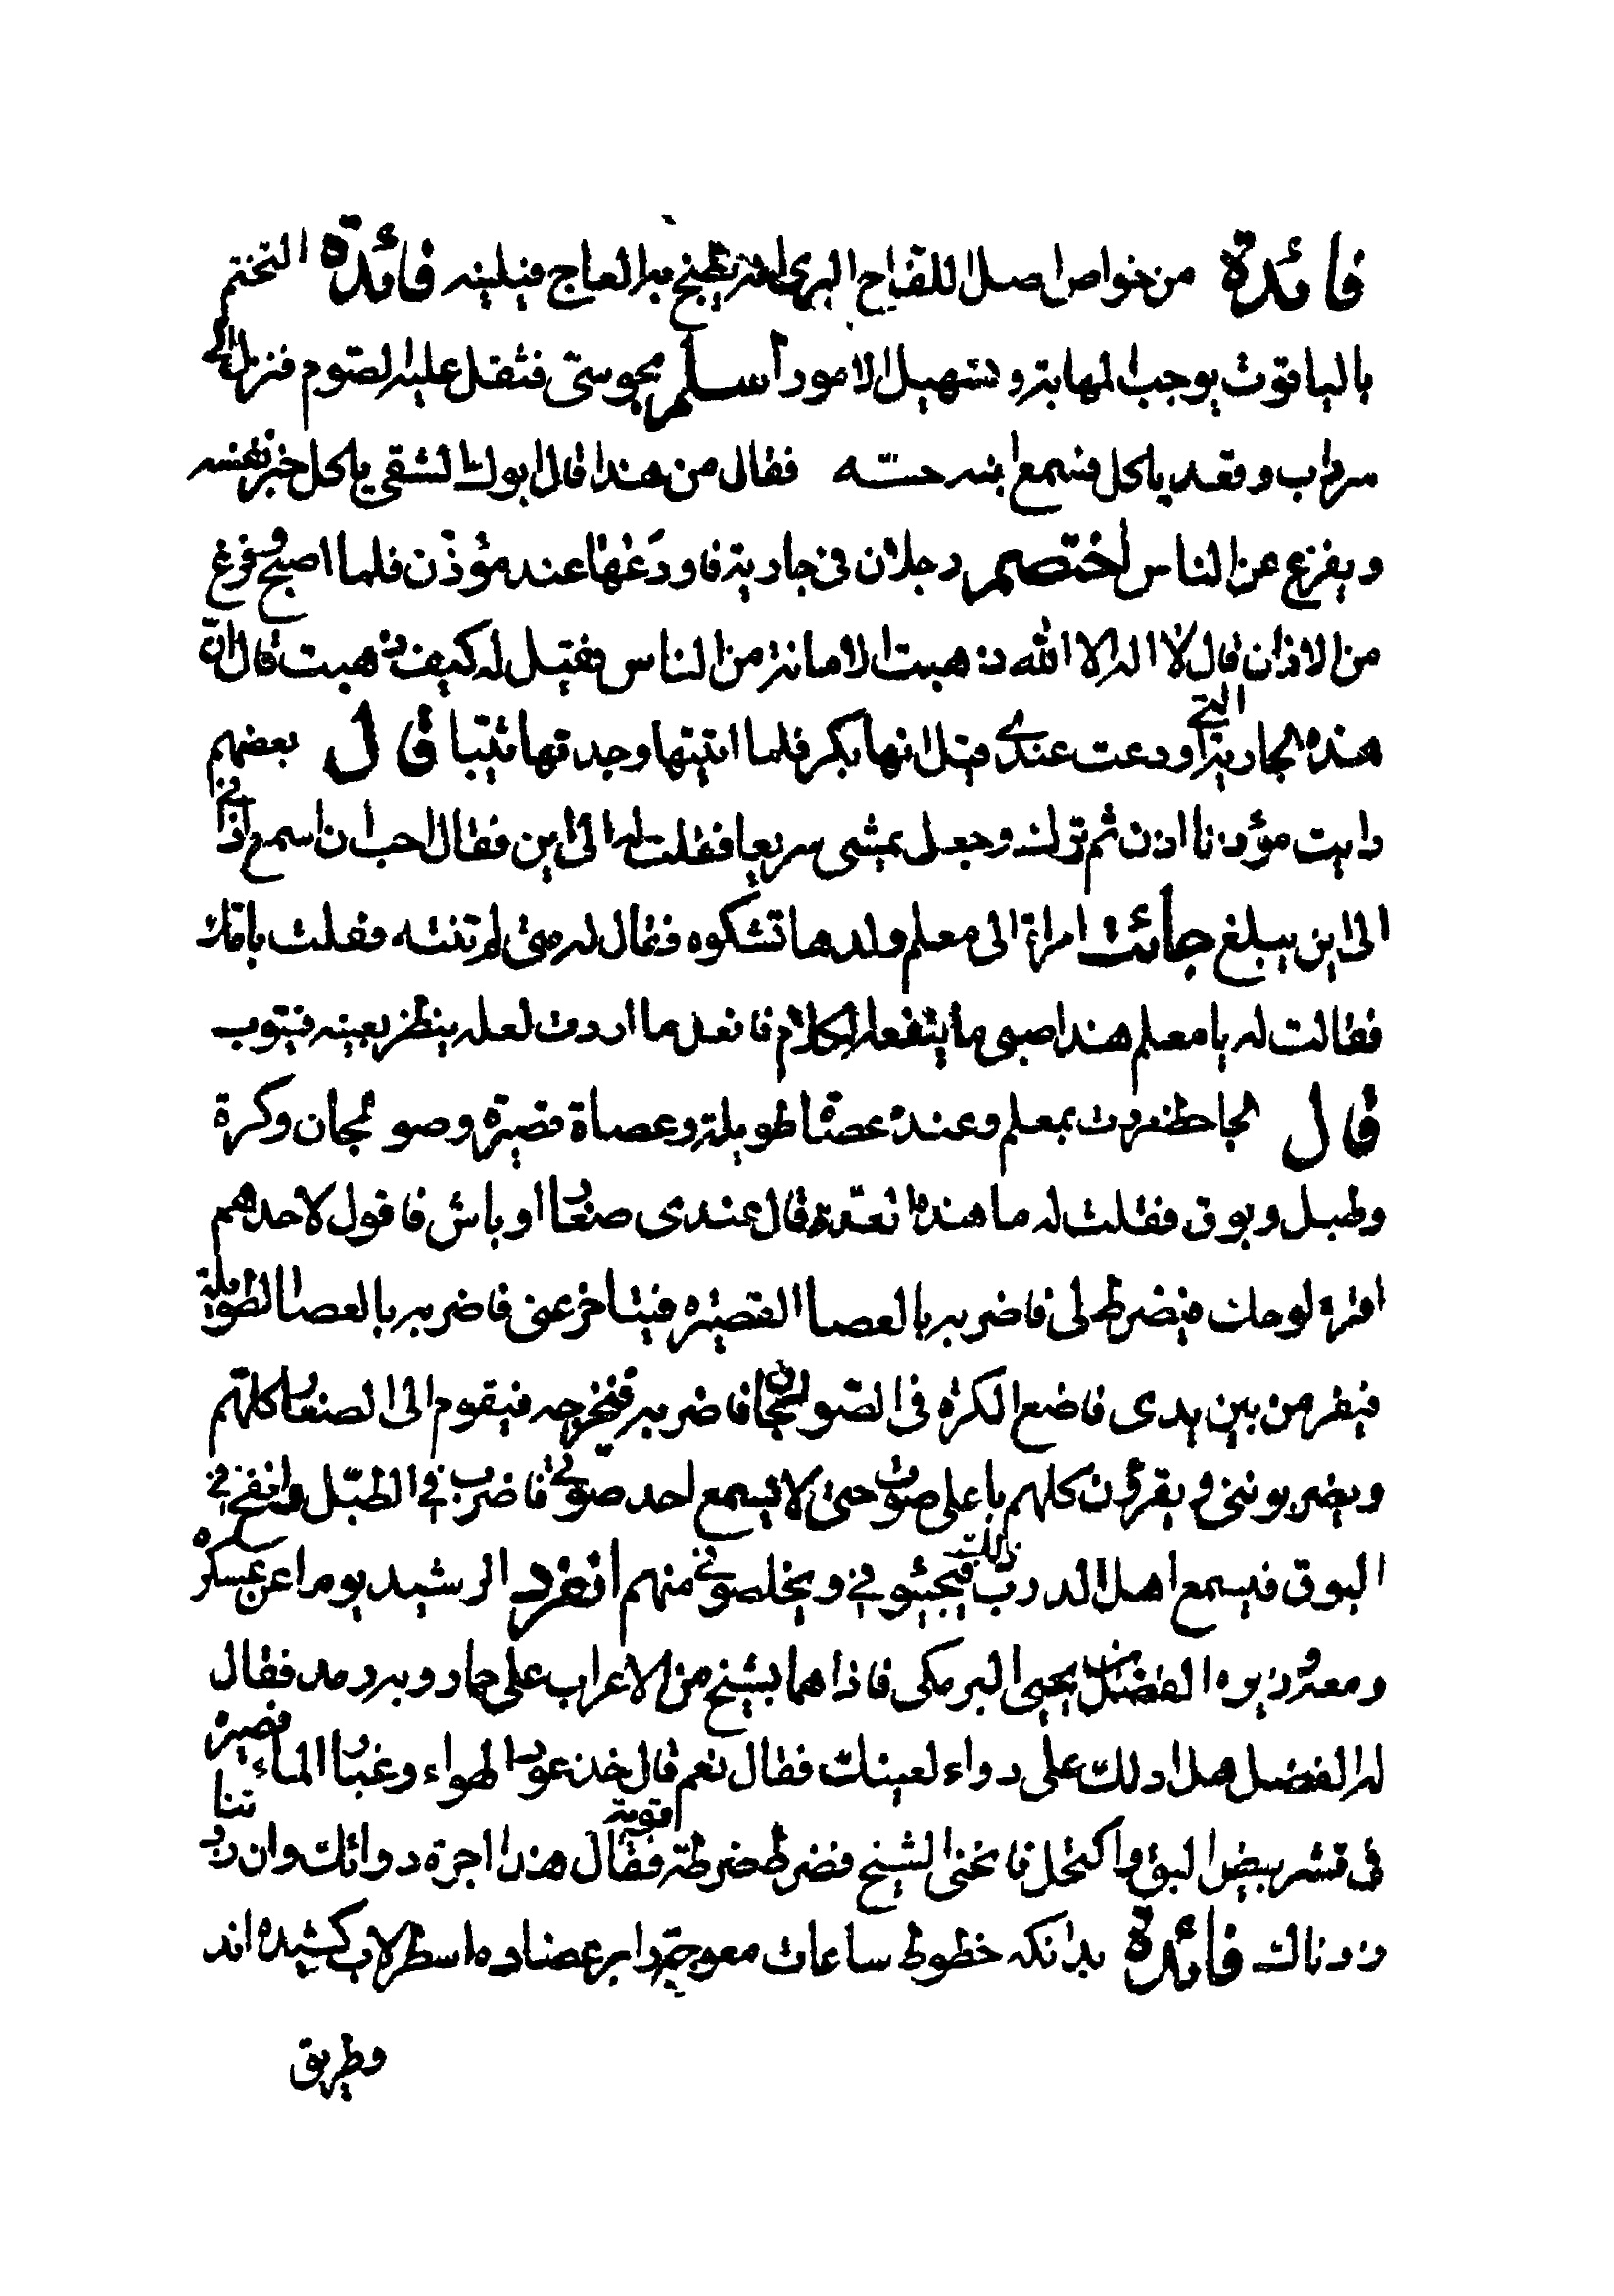 فائدة من خواص اصل اللقاح البری انه یطبخ به العاج فیلینه فائدة التختم
بالیاقوت یوجب المهابة و تسهیل الامور اسلم مجوسیّ فثقل علیه الصّوم فنزل الی
سرداب و قعد یاکل فسمع ابنه حسّه فقال من هذا قال ابوك الشقی یاکل خبز نفسه
و یفزع عن الناس اختصم رجلان فی جاریة فاودعها عند مؤذّن فلما اصبح و فرغ
من الاذان قال لا اله الا الله ذهبت الامانة من الناس فقیل له کیف ذهبت قال انّ
هذه الجاریة التی اودعت عندی قیل انها بکر فلما اتیتها وجدتها ثیّبا قال بعضهم
رایت مؤذنا اذن ثم ترك و جعل یمشی سریعا فقلت له الی این فقال احب ان اسمع اذانی
الی این یبلغ جائت امراة الی معلم ولدها تشکوه فقال له متی لم تنته فعلت بامّك
فقالت له یا معلم هذا صبی ما ینفعه الکلام فافعل ما اردت لعله ینظر بعینه فیتوب
قال الجاحظ مررت بمعلم و عنده عصا طویلة و عصاة قصیرة و صولجان و کرة
و طبل و بوق فقلت له ما هذه العدّة قال عندی صغار اوباش فاقول لاحدهم
اقرء لوحك فیضرط لی فاضربه بالعصا القصیرة فیتاخر عنی فاضربه بالعصا الطویلة
فیفر من بین یدی فاضع الکرة فی الصّولجان فاضربه فتخرجه فیقوم الی الصغار کلّهم
و یضربوننی و یقرؤن کلهم باعلی صوت حتی لا یسمع احد صوتی فاضرب فی الطبل و انفخ فی
البوق فیسمع اهل الدرب ذلك فیجیئونی و یخلصونی منهم انفرد الرشید یوما عن عسکره
و معه وزیره الفضل بن یحیی البرمکی فاذا هما بشیخ من الاعراب علی حمار و به رمد فقال
له الفضل هل ادلك علی دواء لعینك فقال نعم قال خذ عود الهواء و غبار الماء فصیره
فی قشر بیض البق و اکتحل فانحنی الشیخ فضرط ضرطة قویة فقال هذا اجرة دوائك و ان زدتنا
زدناك فائدة بدانکه خطوط ساعات معوجّه را بر عضاده اسطرلاب کشیده اند
و طریق